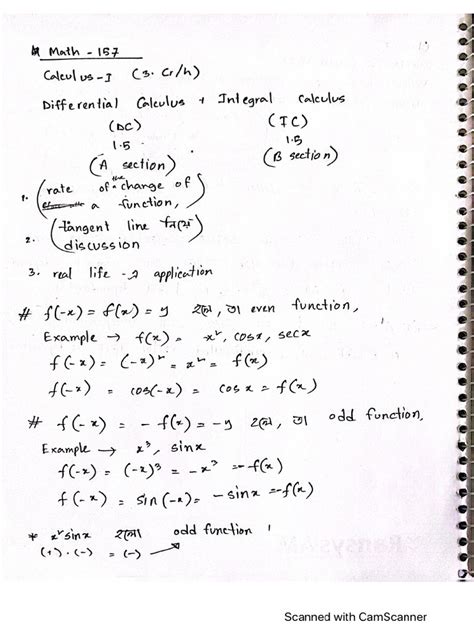 Math - 157
Calculus-I (3. Cr/h)
Differential Calculus + Integral calculus
(DC) (IC)
1.5 1.5
(A section) (B section)
1. (rate of the change of a function,)
2. (Tangent line নিয়ে discussion)
3. real life-এ application
# f(-x) = f(x) = y হলে, তা even function,
Example → f(x) = x², cosx, secx
f(-x) = (-x)² = x² = f(x)
f(-x) = cos(-x) = cosx = f(x)
# f(-x) = -f(x) = -y হলে, তা odd function,
Example → x³, sinx
f(-x) = (-x)³ = -x³ = -f(x)
f(-x) = sin(-x) = -sinx = -f(x)
* x²sinx হলো odd function।
(+)·(-) = (-)
Scanned with CamScanner